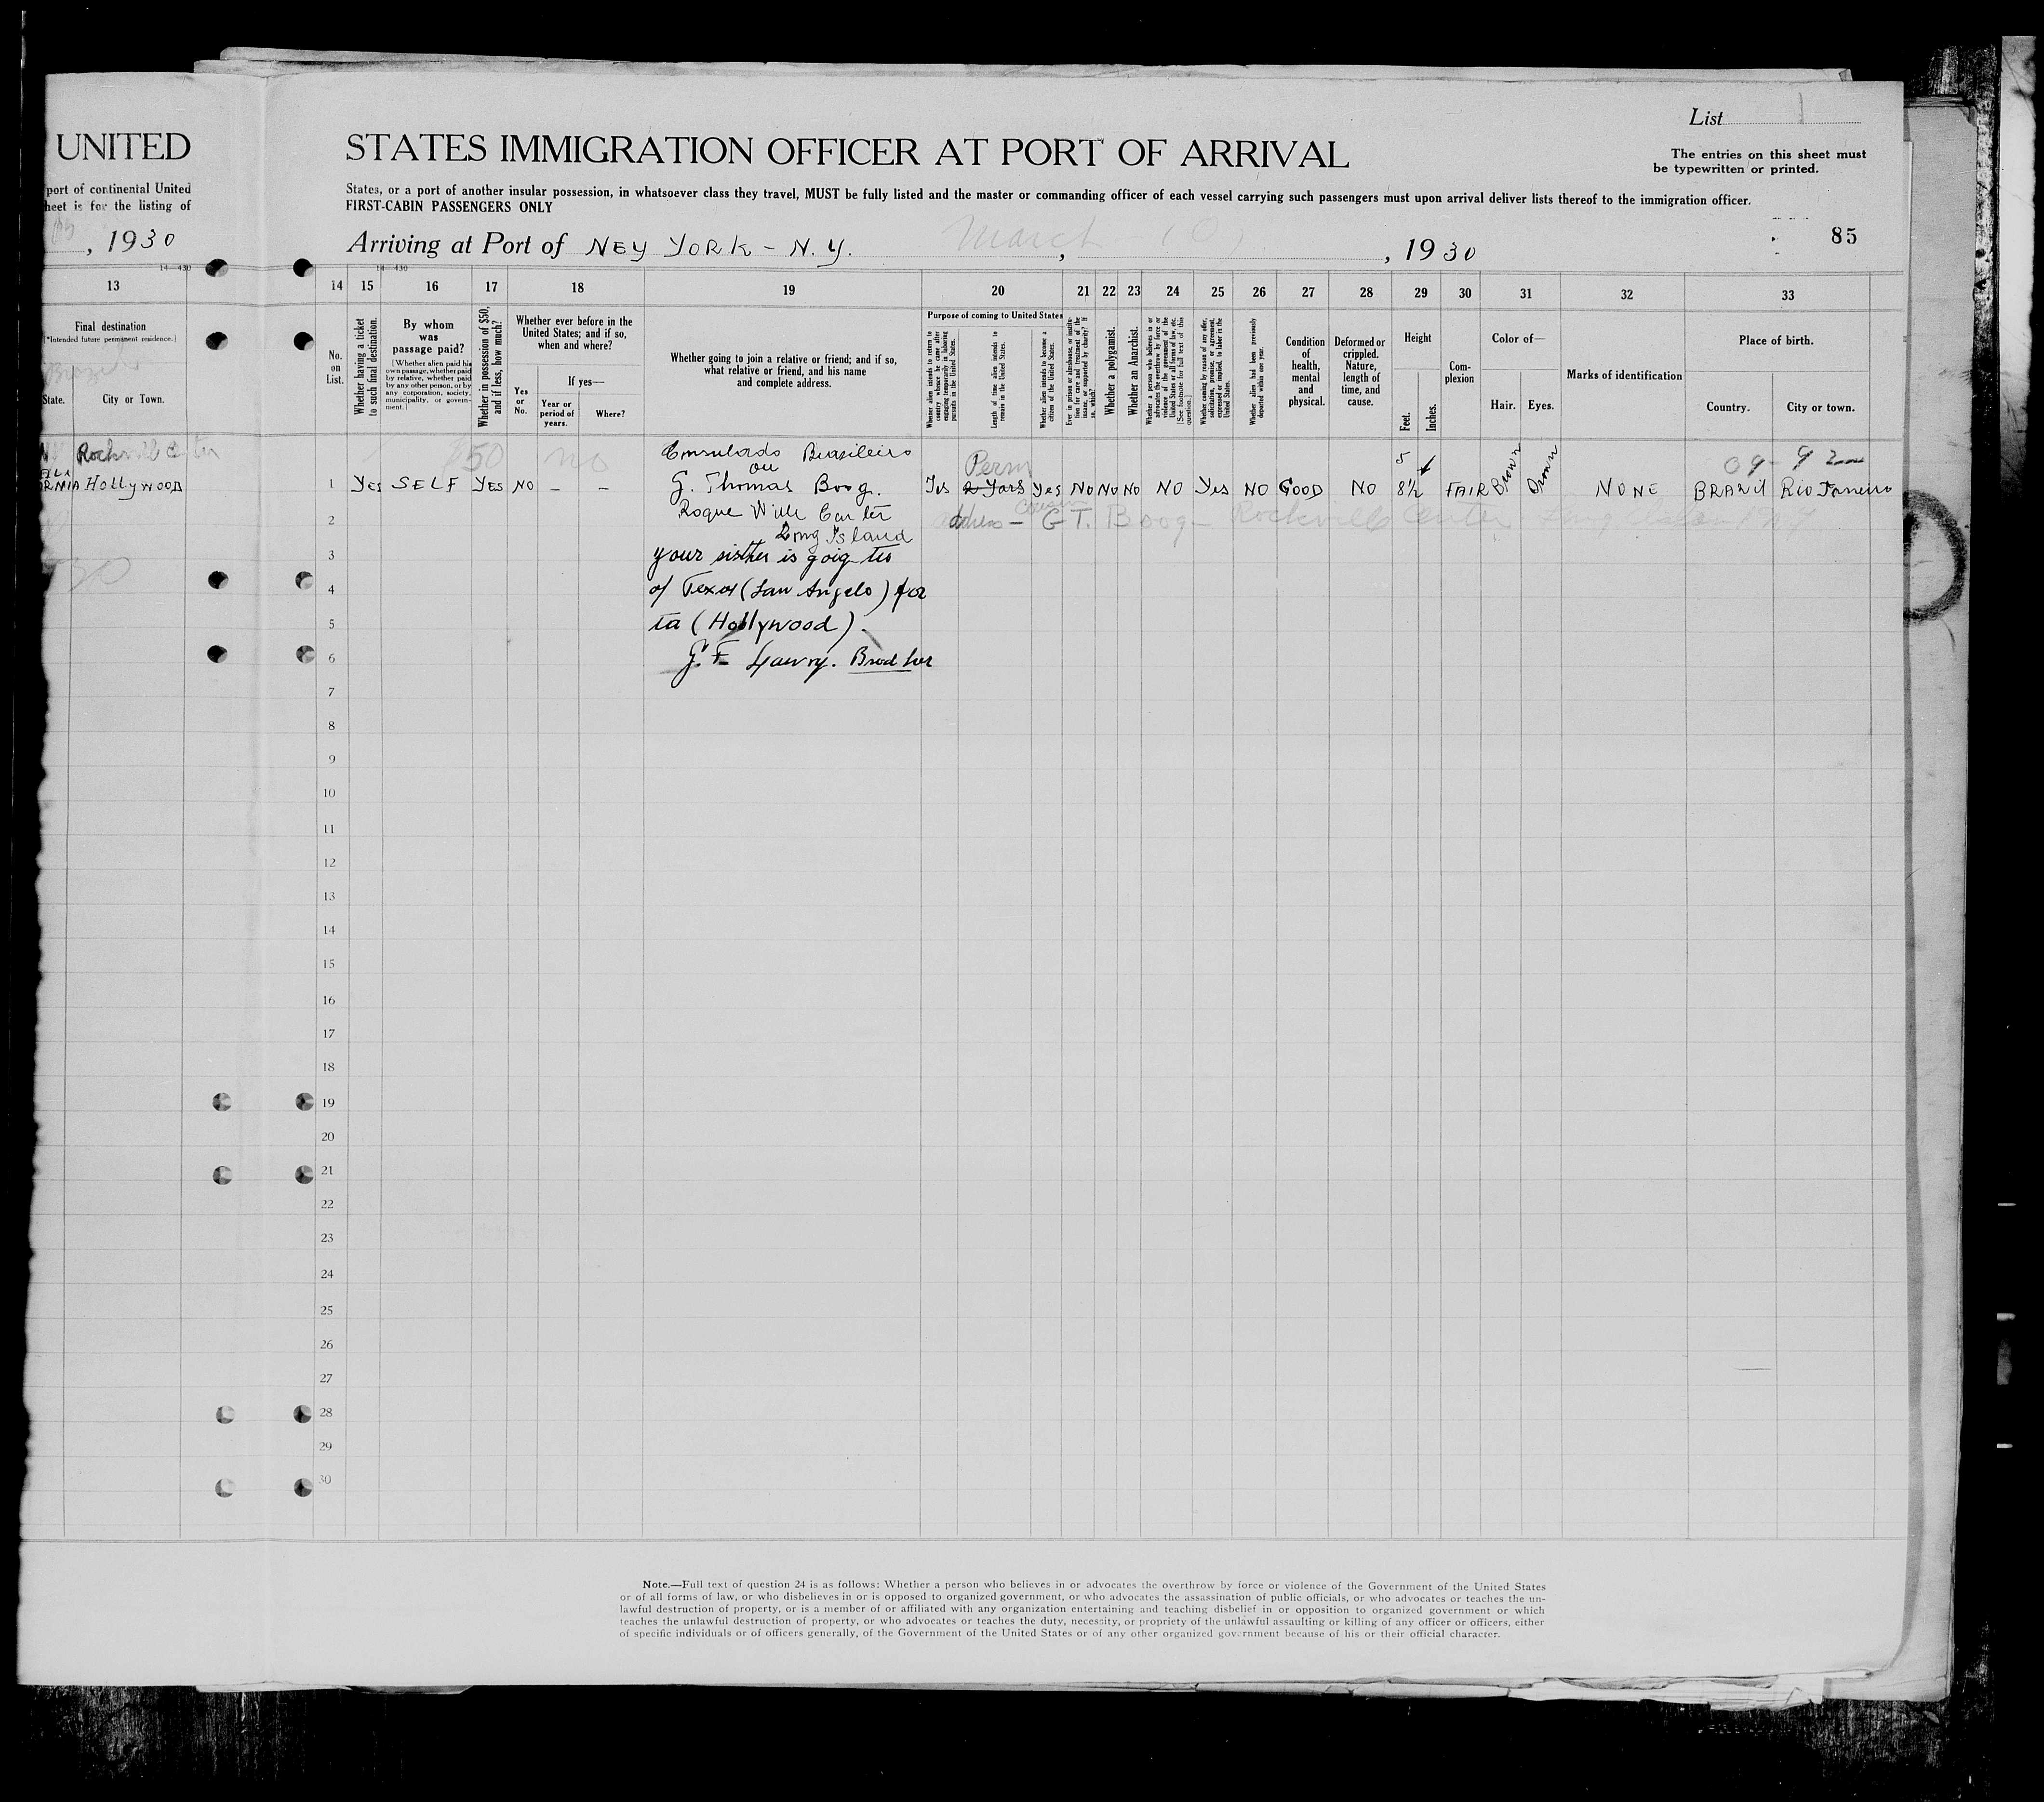 List 1
UNITED STATES IMMIGRATION OFFICER AT PORT OF ARRIVAL
The entries on this sheet must
be typewritten or printed.
port of continental United States, or a port of another insular possession, in whatsoever class they travel, MUST be fully listed and the master or commanding officer of each vessel carrying such passengers must upon arrival deliver lists thereof to the immigration officer.
heet is for the listing of FIRST-CABIN PASSENGERS ONLY
, 1930
Arriving at Port of NEY YORK - N.Y. March 10, , 1930
85
14-430 14-430
13 14 15 16 17 18 19 20 21 22 23 24 25 26 27 28 29 30 31 32 33
Final destination
[*Intended future permanent residence.]
Brazil
State.
City or Town.
No.
on
List.
Whether having a ticket
to such final destination.
By whom
was
passage paid?
[Whether alien paid his
own passage, whether paid
by relative, whether paid
by any other person, or by
any corporation, society,
municipality, or govern-
ment.]
Whether in possession of $50,
and if less, how much?
Whether ever before in the
United States; and if so,
when and where?
Yes
or
No.
If yes—
Year or
period of
years.
Where?
Whether going to join a relative or friend; and if so,
what relative or friend, and his name
and complete address.
Purpose of coming to United States
Whether alien intends to return to
country whence he came after
engaging temporarily in laboring
pursuits in the United States.
Length of time alien intends to
remain in the United States.
Whether alien intends to become a
citizen of the United States.
Ever in prison or almshouse, or institu-
tion for care and treatment of the
insane, or supported by charity? If
so, which?
Whether a polygamist.
Whether an Anarchist.
Whether a person who believes in or
advocates the overthrow by force or
violence of the government of the
United States or all forms of law, etc.
[See footnote for full text of this
question.]
Whether coming by reason of any offer,
solicitation, promise, or agreement,
expressed or implied, to labor in the
United States.
Whether alien had been previously
deported within one year.
Condition
of
health,
mental
and
physical.
Deformed or
crippled.
Nature,
length of
time, and
cause.
Height
Feet.
Inches.
Com-
plexion
Color of—
Hair.
Eyes.
Marks of identification
Place of birth.
Country.
City or town.
Rockville Center
$50 no
Consulado Brasileiro
Perm
5
ou
ORNIA Hollywood
1 Yes SELF YES NO – – G. Thomas Boog. Yes 2 Yars Yes No No No NO Yes NO GOOD NO 8½ FAIR Brown Brown NONE BRAZIL Rio Janeiro
Roque Wille Center
2 address - Cousin G T. Boog - Rockville Center
Long Island
3 your sisther is goig tu
4 of Texas (San Angelo) for
5 ta (Hollywood).
6 Brodher
7
8
9
10
11
12
13
14
15
16
17
18
19
20
21
22
23
24
25
26
27
28
29
30
Note.—Full text of question 24 is as follows: Whether a person who believes in or advocates the overthrow by force or violence of the Government of the United States
or of all forms of law, or who disbelieves in or is opposed to organized government, or who advocates the assassination of public officials, or who advocates or teaches the un-
lawful destruction of property, or is a member of or affiliated with any organization entertaining and teaching disbelief in or opposition to organized government or which
teaches the unlawful destruction of property, or who advocates or teaches the duty, necessity, or propriety of the unlawful assaulting or killing of any officer or officers, either
of specific individuals or of officers generally, of the Government of the United States or of any other organized government because of his or their official character.